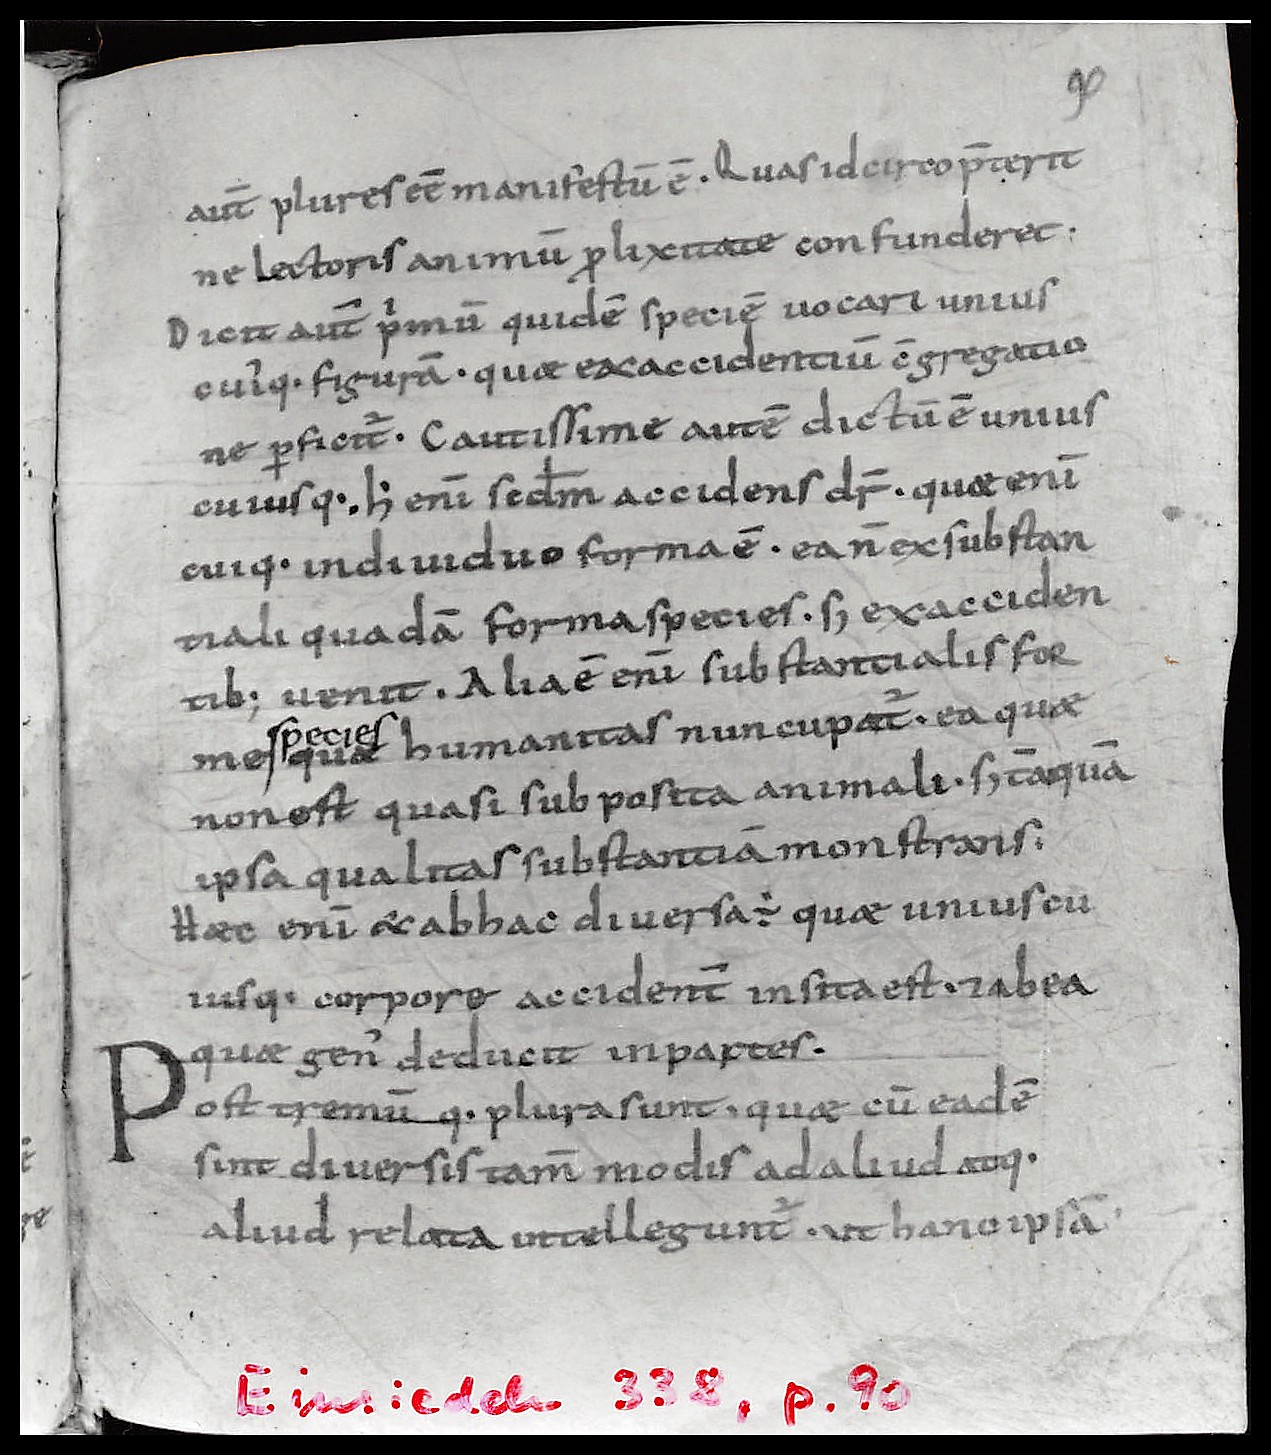 90
aut̄ plures eē manifestū ē. Quas idcirco p̄terit
ne lectoris animū ꝓlixitate confunderet.
Dicit aut̄ pͥmū quidē speciē uocari unius
cuiq. figurā. quae ex accidentiū c̄gregatio
ne ꝑficit᷑. Cautissime autē dictū ē unius
cuiusq. h̔ eni᷑ scđm accidens dr̄. quae enī
cuiq. indiuiduo forma ē. ea n̄ ex substan
tiali quadā forma species. sꝫ ex acciden
tib; uenit. Alia ē enī substantialis for
mes species quae humanitas nuncupat᷑. ea quae
non est quasi subposita animali. sꝫ tāquā
ipsa qualitas substantiā monstrans.
Haec enī & ab hac diuersa ÷ quae uniuscu
iusq. corpore accident̄ insita est. ⁊ ab ea
quae gen̓ deducit in partes.
Postremū q. plura sunt. quae cū eadē
sint diuersis tam̄ modis ad aliud atq.
aliud relata intellegunt᷑. ut hanc ipsā
Einsiedeln 338, p. 90